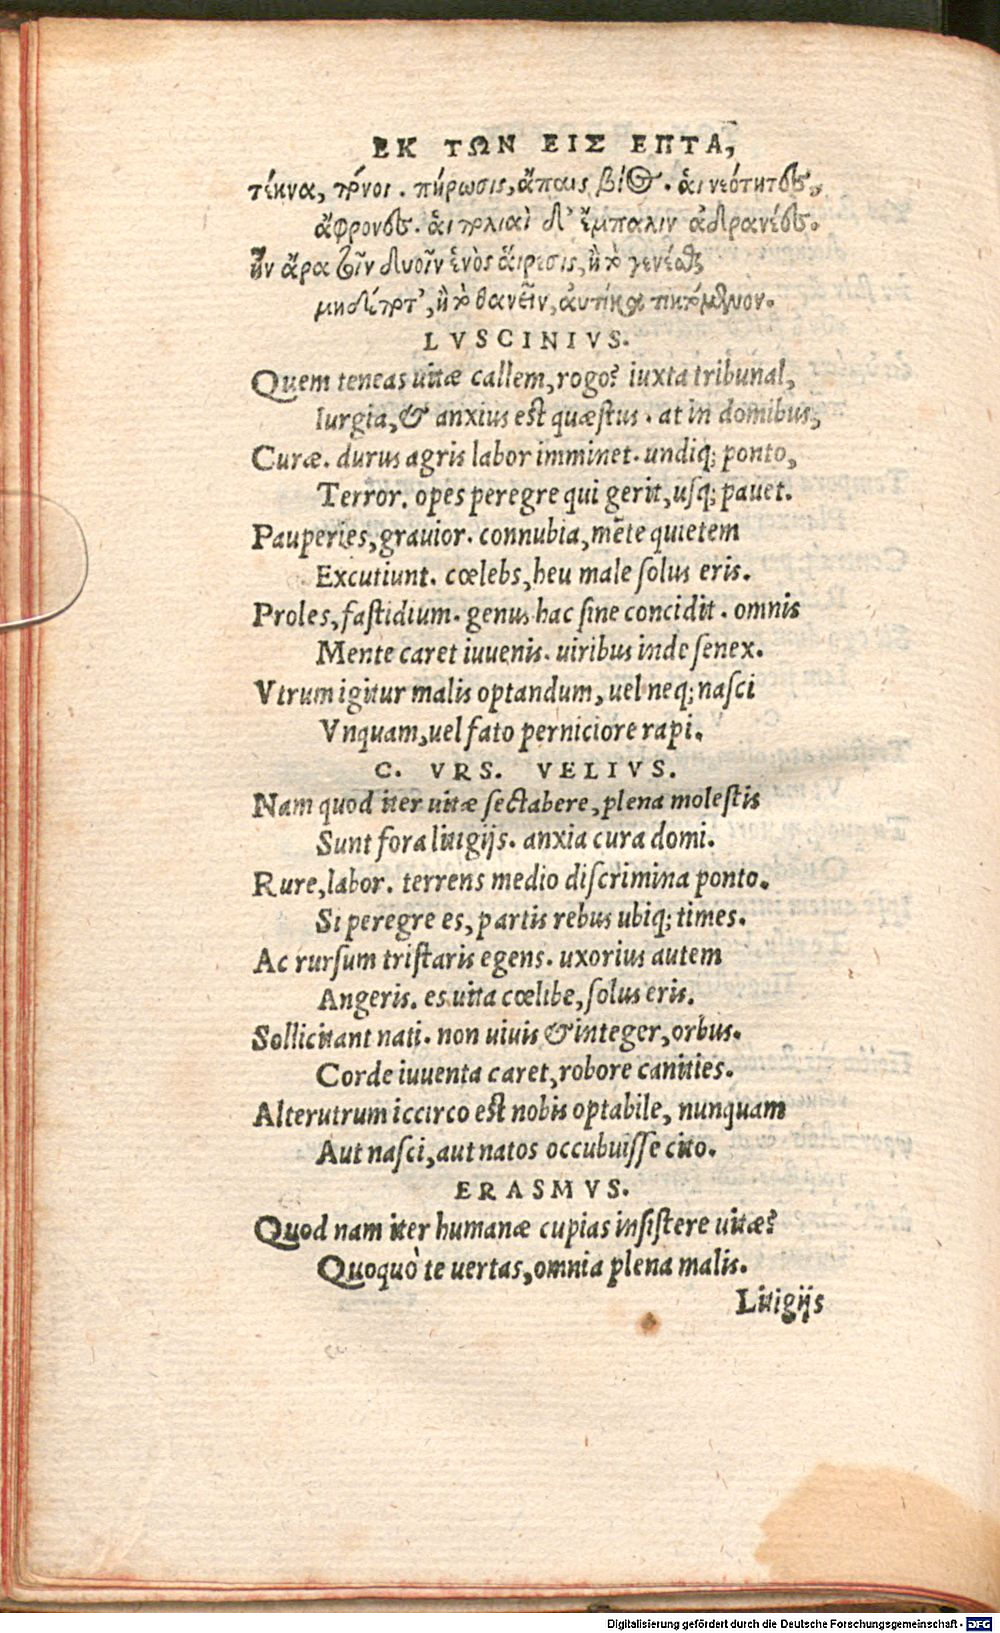 ΕΚ ΤΩΝ ΕΙΣ ΕΠΤΑ,
τέκνα, πόνοι. πήρωσις, ἄπαις βίος. ἁι νεότητες,
ἄφρονες. ἁι πολιαὶ δ' ἔμπαλιν ἀδρανέες.
ἦν ἄρα τοῖν δυοῖν ἑνὸς ἅιρεσις, ἢ τὸ γενέσθαι
μηδέποτ', ἢ τὸ θανεῖν, ἀυτίκα τικτόμενον.
LVSCINIVS.
Quem teneas uitæ callem, rogo? iuxta tribunal,
Iurgia, & anxius est quæstus. at in domibus,
Curæ. durus agris labor imminet. undiq; ponto,
Terror. opes peregre qui gerit, usq; pauet.
Pauperies, grauior. connubia, mẽte quietem
Excutiunt. cœlebs, heu male solus eris.
Proles, fastidium. genus hac sine concidit. omnis
Mente caret iuuenis. uiribus inde senex.
Vtrum igitur malis optandum, uel neq; nasci
Vnquam, uel fato perniciore rapi.
C. VRS. VELIVS.
Nam quod iter uitæ sectabere, plena molestis
Sunt fora litigijs. anxia cura domi.
Rure, labor. terrens medio discrimina ponto.
Si peregre es, partis rebus ubiq; times.
Ac rursum tristaris egens. uxorius autem
Angeris. es uita cœlibe, solus eris.
Sollicitant nati. non uiuis & integer, orbus.
Corde iuuenta caret, robore canities.
Alterutrum iccirco est nobis optabile, nunquam
Aut nasci, aut natos occubuisse cito.
ERASMVS.
Quod nam iter humanæ cupias insistere uitæ?
Quoquò te uertas, omnia plena malis.
Litigijs
Digitalisierung gefördert durch die Deutsche Forschungsgemeinschaft - DFG